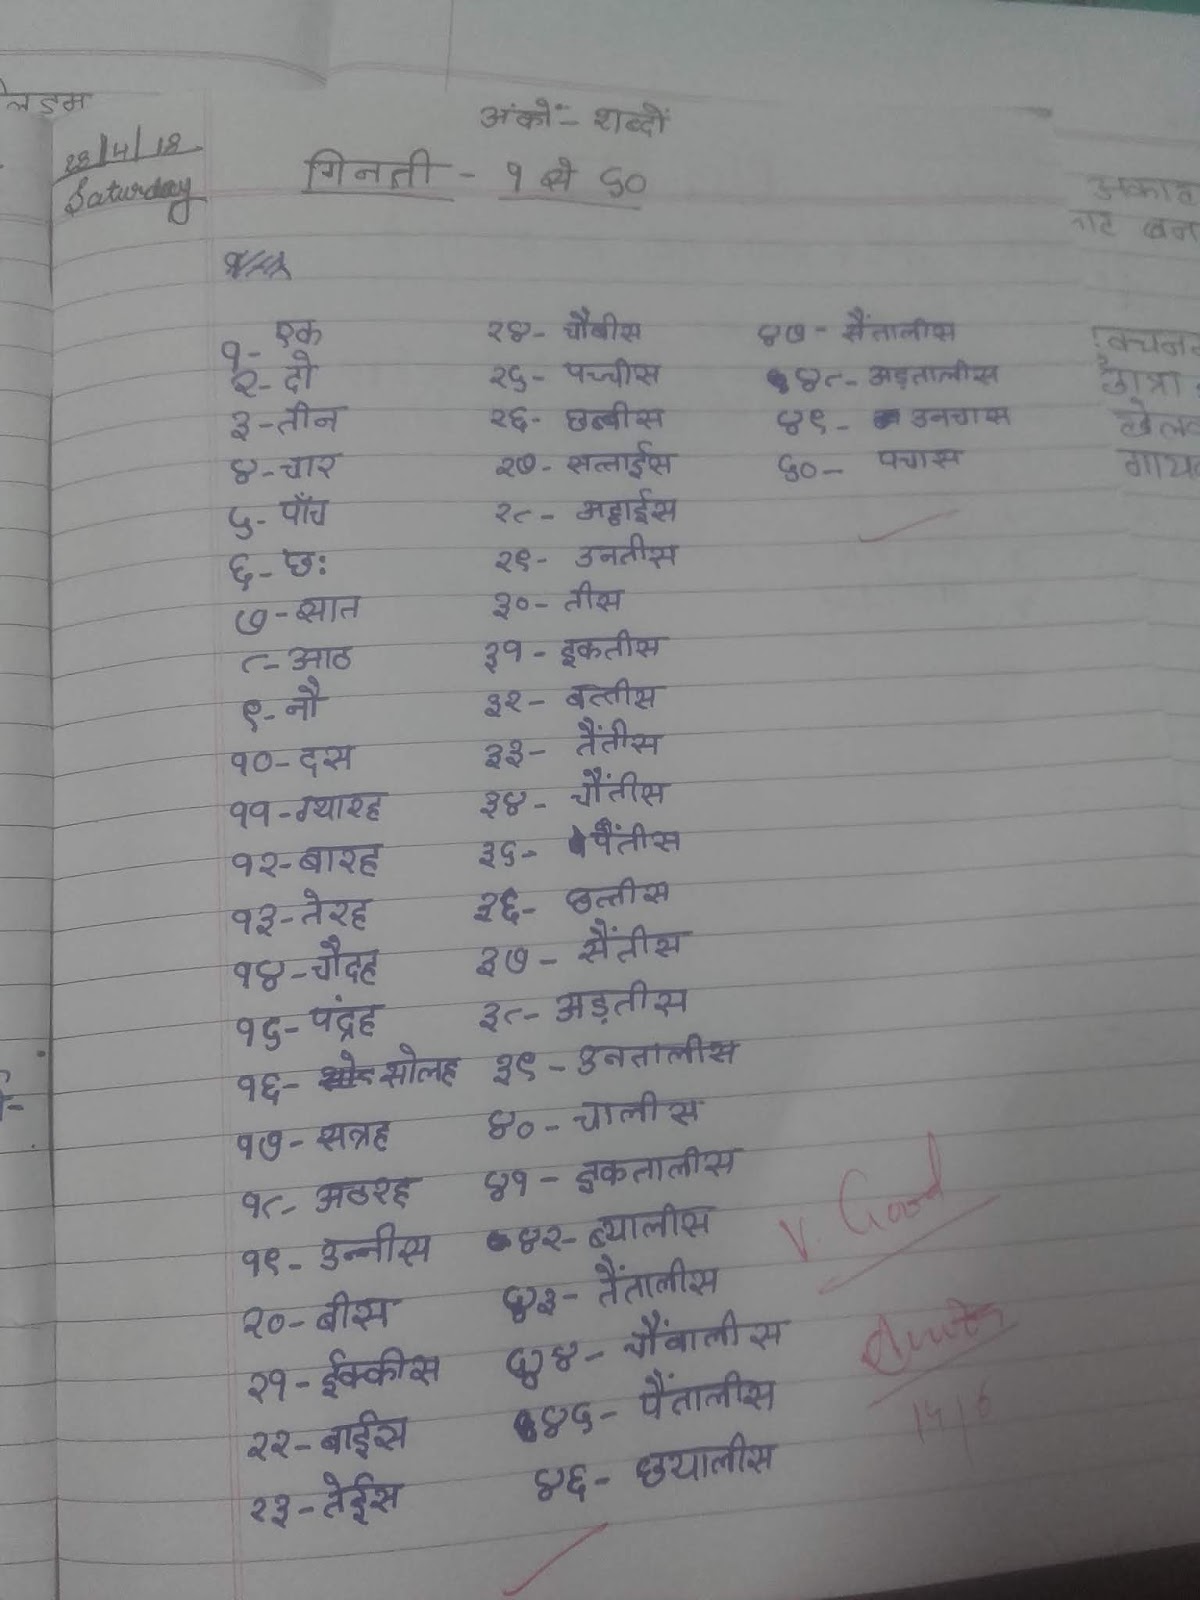 लडम
28/4/18
Saturday
अंकों - शब्दों
गिनती - १ से ५०
१- एक
२- दो
३- तीन
४- चार
५- पाँच
६- छः
७- सात
८- आठ
९- नौ
१०- दस
११- ग्यारह
१२- बारह
१३- तेरह
१४- चौदह
१५- पंद्रह
१६- सोलह
१७- सत्रह
१८- अठरह
१९- उन्नीस
२०- बीस
२१- ईक्कीस
२२- बाईस
२३- तेईस
२४- चौबीस
२५- पच्चीस
२६- छब्बीस
२७- सत्ताईस
२८- अठ्ठाईस
२९- उनतीस
३०- तीस
३१- इकतीस
३२- बत्तीस
३३- तैंतीस
३४- चौंतीस
३५- पैंतीस
३६- छत्तीस
३७- सैंतीस
३८- अड़तीस
३९- उनतालीस
४०- चालीस
४१- इकतालीस
४२- ब्यालीस
४३- तैंतालीस
४४- चौंवालीस
४५- पैंतालीस
४६- छयालीस
४७- सैंतालीस
४८- अड़तालीस
४९- उनचास
५०- पचास
V. Good